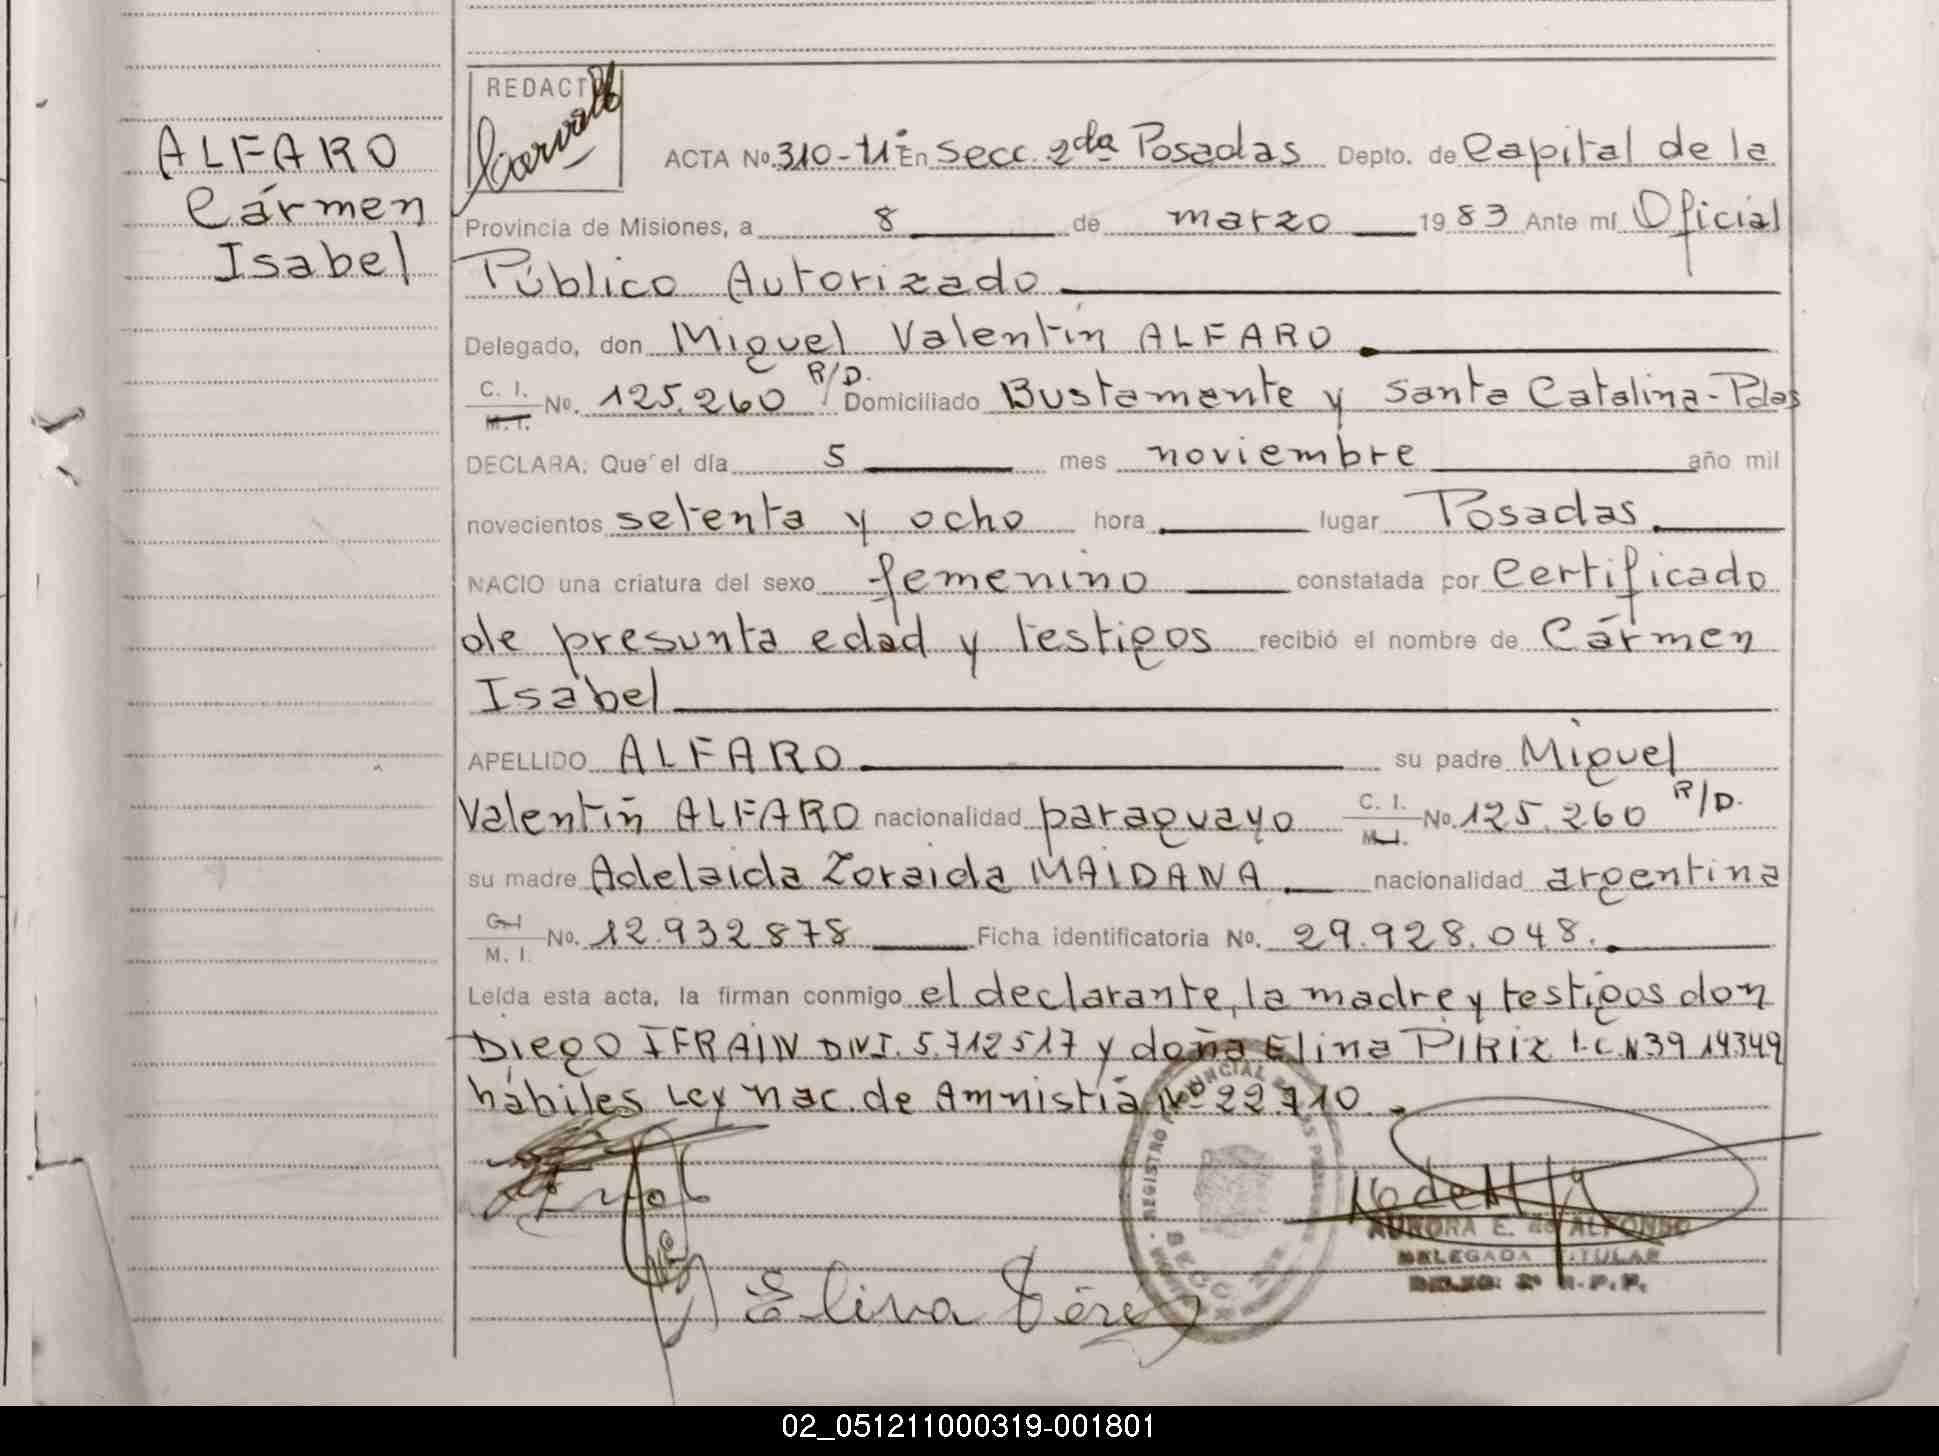 ALFARO
Cármen
Isabel
REDACTÓ
ACTA No. 310-T1º En Secc. 2da Posadas Depto. de Capital de la
Provincia de Misiones, a 8 de marzo 1983 Ante mí Oficial
Público Autorizado
Delegado, don Miguel Valentín ALFARO
C. I. M. I. No. 125.260 R/D. Domiciliado Bustamante y Santa Catalina-Pdas
DECLARA: Que el día 5 mes noviembre año mil
novecientos setenta y ocho hora lugar Posadas
NACIO una criatura del sexo femenino constatada por Certificado
de presunta edad y testigos recibió el nombre de Cármen
Isabel
APELLIDO ALFARO su padre Miguel
Valentín ALFARO nacionalidad paraguayo C. I. M. I. No. 125.260 R/D.
su madre Adelaida Zoraida MAIDANA nacionalidad argentina
C. I. M. I. No. 12.932.878 Ficha identificatoria No. 29.928.048.
Leída esta acta, la firman conmigo el declarante, la madre y testigos don
Diego IFRAIN DNI. 5.712517 y doña Elina PIRIZ L.C.N 3914349
hábiles Ley nac. de Amnistía Nº 22.710.
REGISTRO PROVINCIAL DE LAS PERSONAS
Elina
AURORA E. de ALFONSO
DELEGADA TITULAR
DELEG. 2ª R.P.P.
02_051211000319-001801